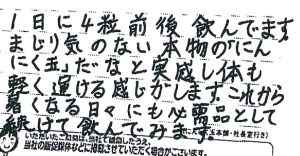 1日に4粒前後飲んでます
まじり気のない本物の「にん
にく玉」だなと実感し体も
軽く運ける感じがしますこれから
暑くなる日々にも必需品として
続けて飲んでみます
いただいたご意見は、当社で検討したうえ、
当社の販促媒体などに掲載させていただく場合がございます。